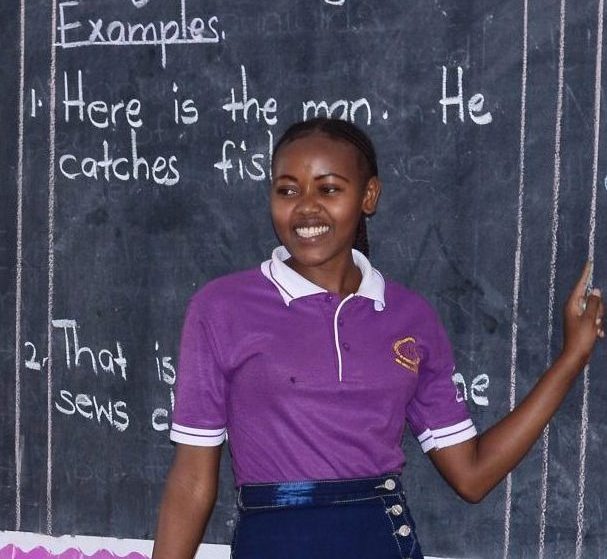 Examples.
1. Here is the man. He
catches fish
2. That is
sews